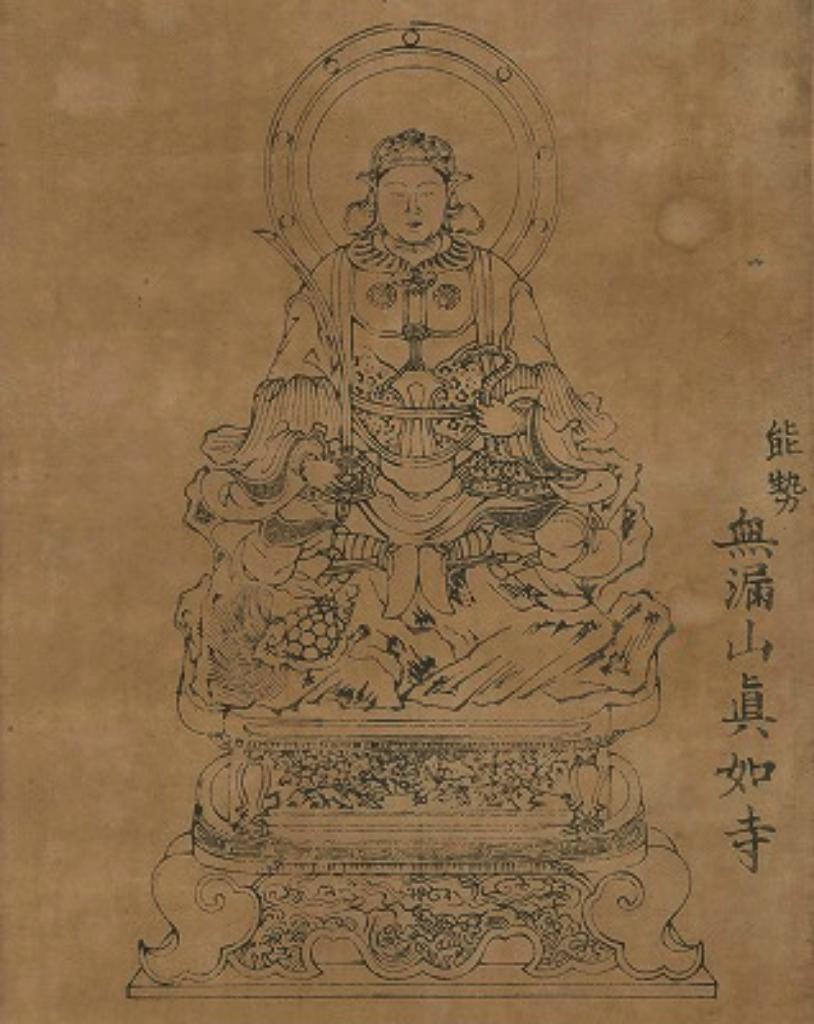 能勢
無漏山眞如寺